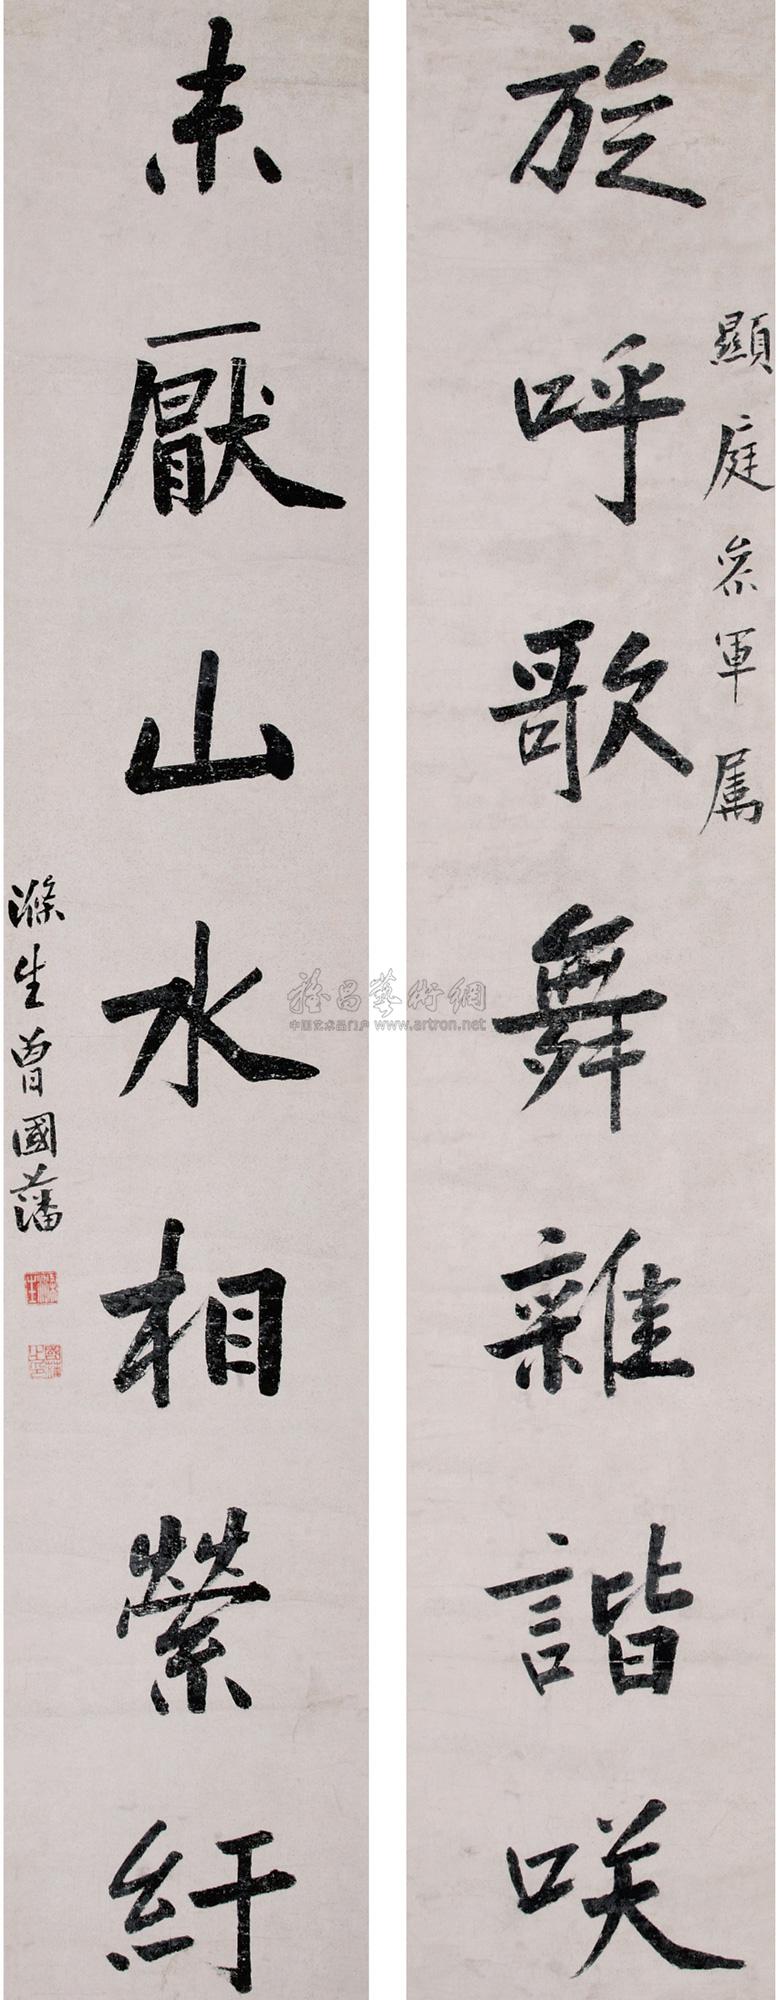 顯庭叅軍属
旋呼歌舞雜諧咲
未厭山水相縈紆
滌生曾國藩
雅昌藝術網
中国艺术品门户 www.artron.net